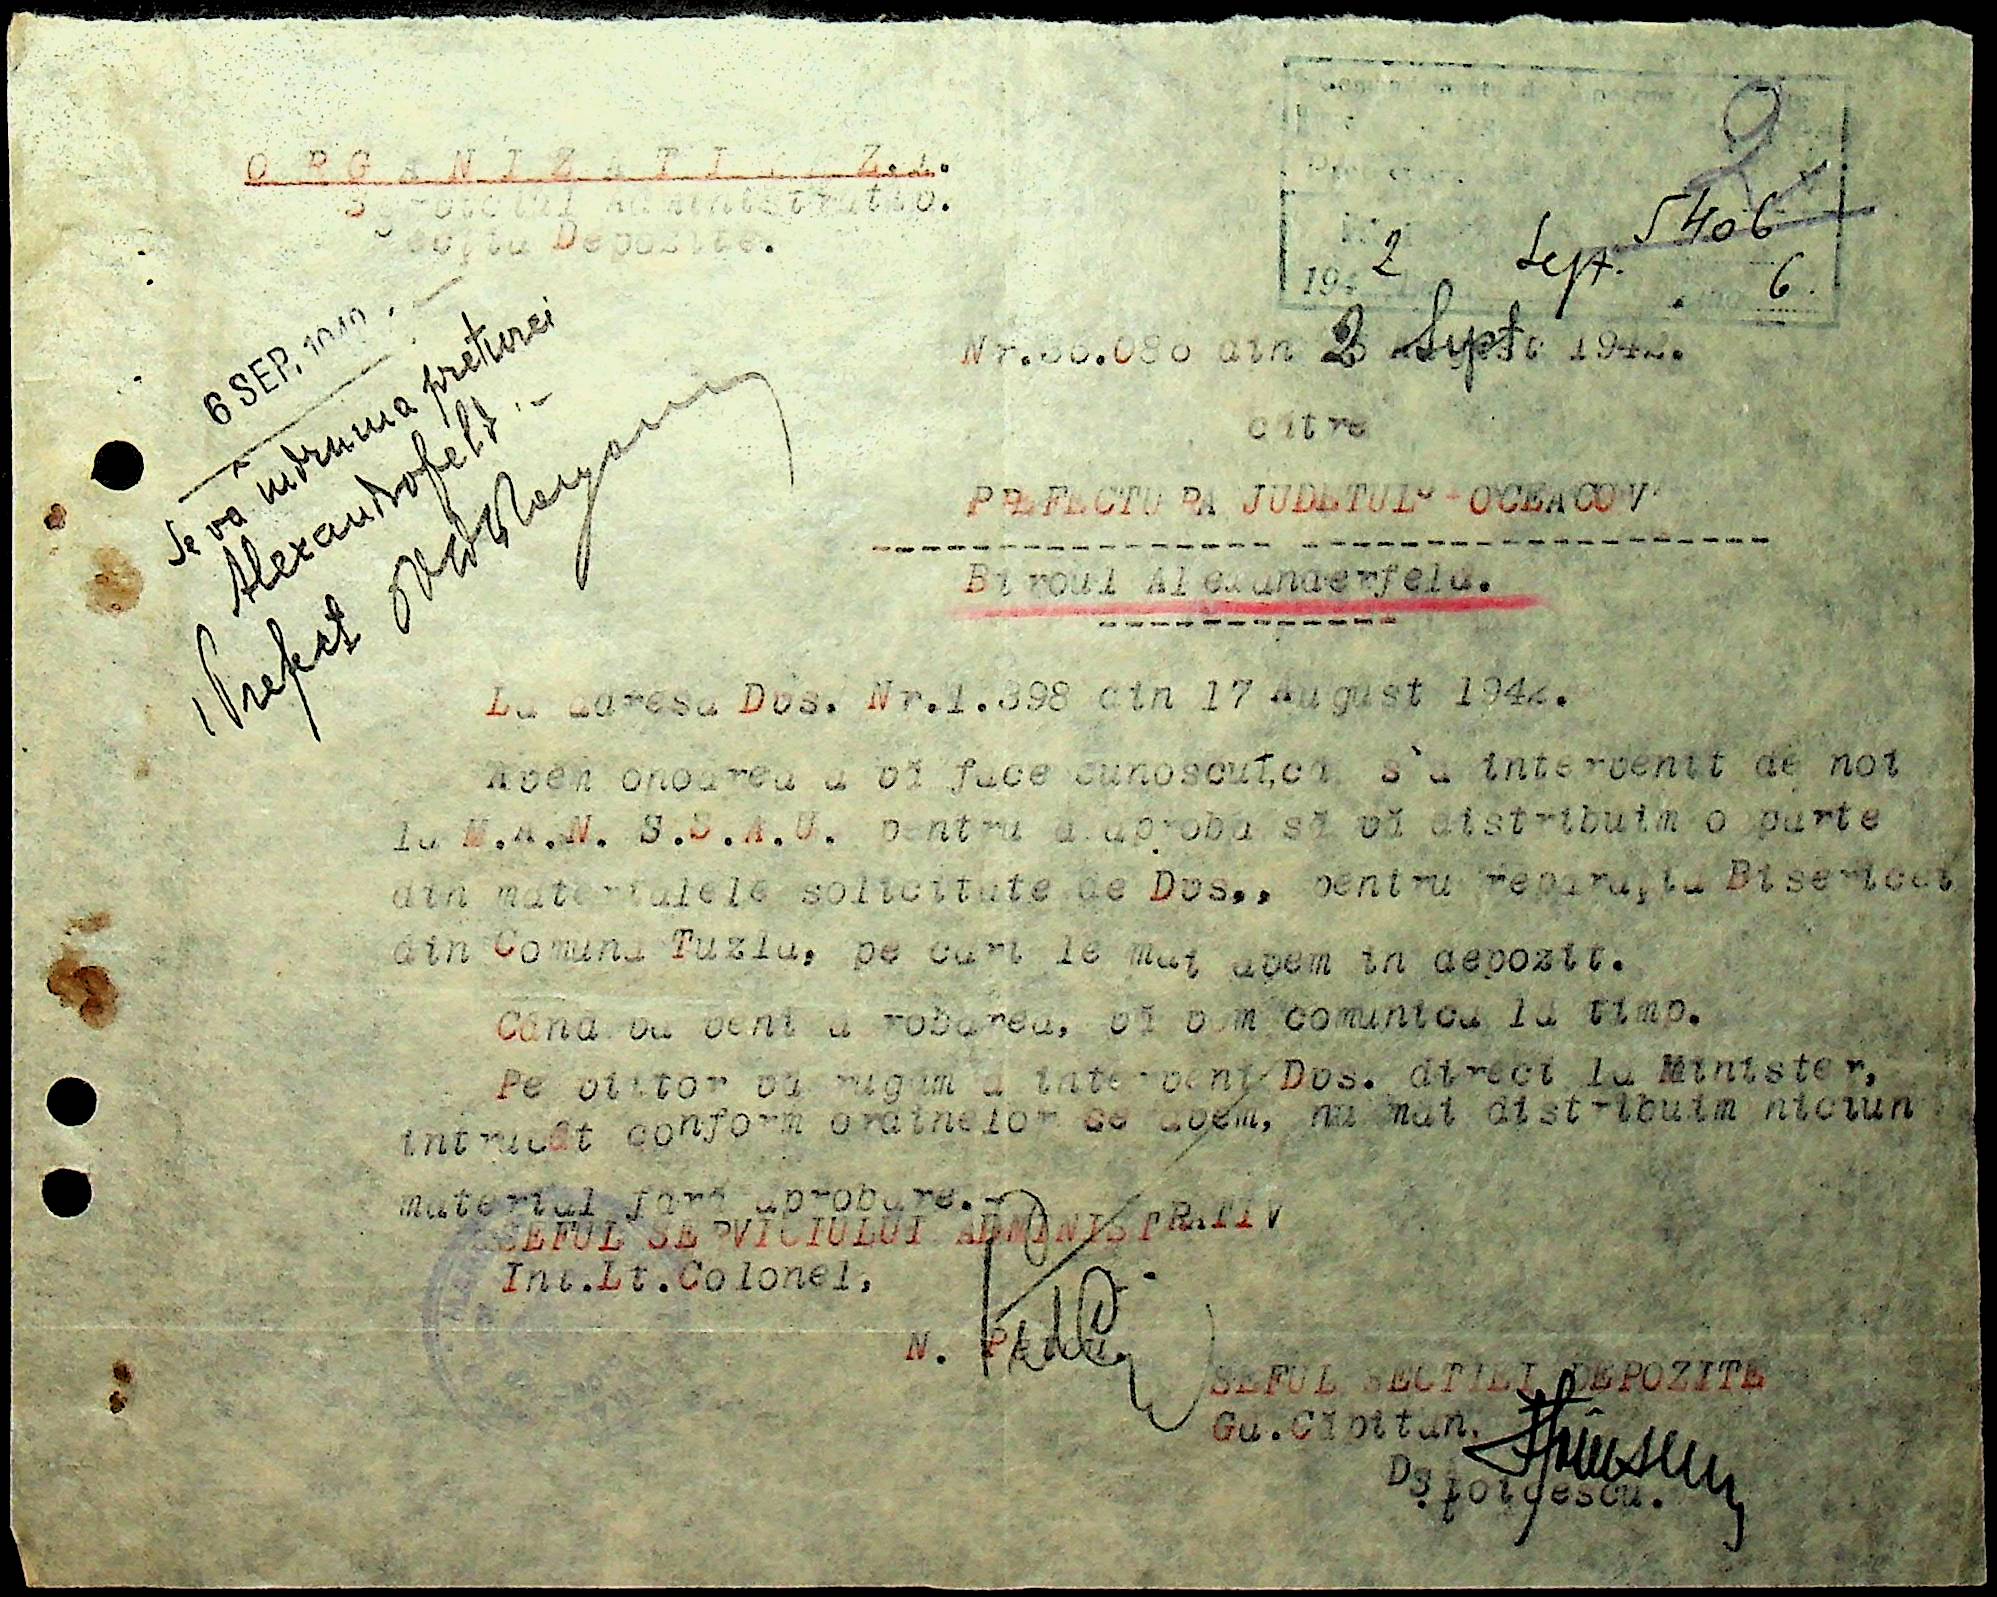 O R G A N I Z A T I Z.I.
Serviciul Administrativ.
Secţia Depozite.
5406
2 Sept. 6.
194
6 SEP. 1942
Se va îndruma preturei
Alexandrofeld.
Prefect
Nr.36.080 din 2 Sept 1942.
către
PREFECTURA JUDETULUI OCEACOV
Biroul Alexanderfeld.
La adresa Dvs. Nr.1.398 din 17 August 1942.
Avem onoarea a vă face cunoscut,că s'a intervenit de noi
la M.A.N. S.S.A.U. pentru a aproba să vă distribuim o parte
din materialele solicitate de Dvs., pentru reparaţia Bisericei
din Comuna Tuzla, pe cari le mai avem in depozit.
Când va veni aprobarea, vă vom comunica la timp.
Pe viitor vă rugăm a interveni Dvs. direct la Minister,
intrucât conform ordinelor ce avem, nu mai distribuim niciun
material fară aprobare.-
SEFUL SERVICIULUI ADMINISTRATIV
Int.Lt.Colonel,
N.
SEFUL SECTIEI DEPOZITE
Ga.Căpitan.